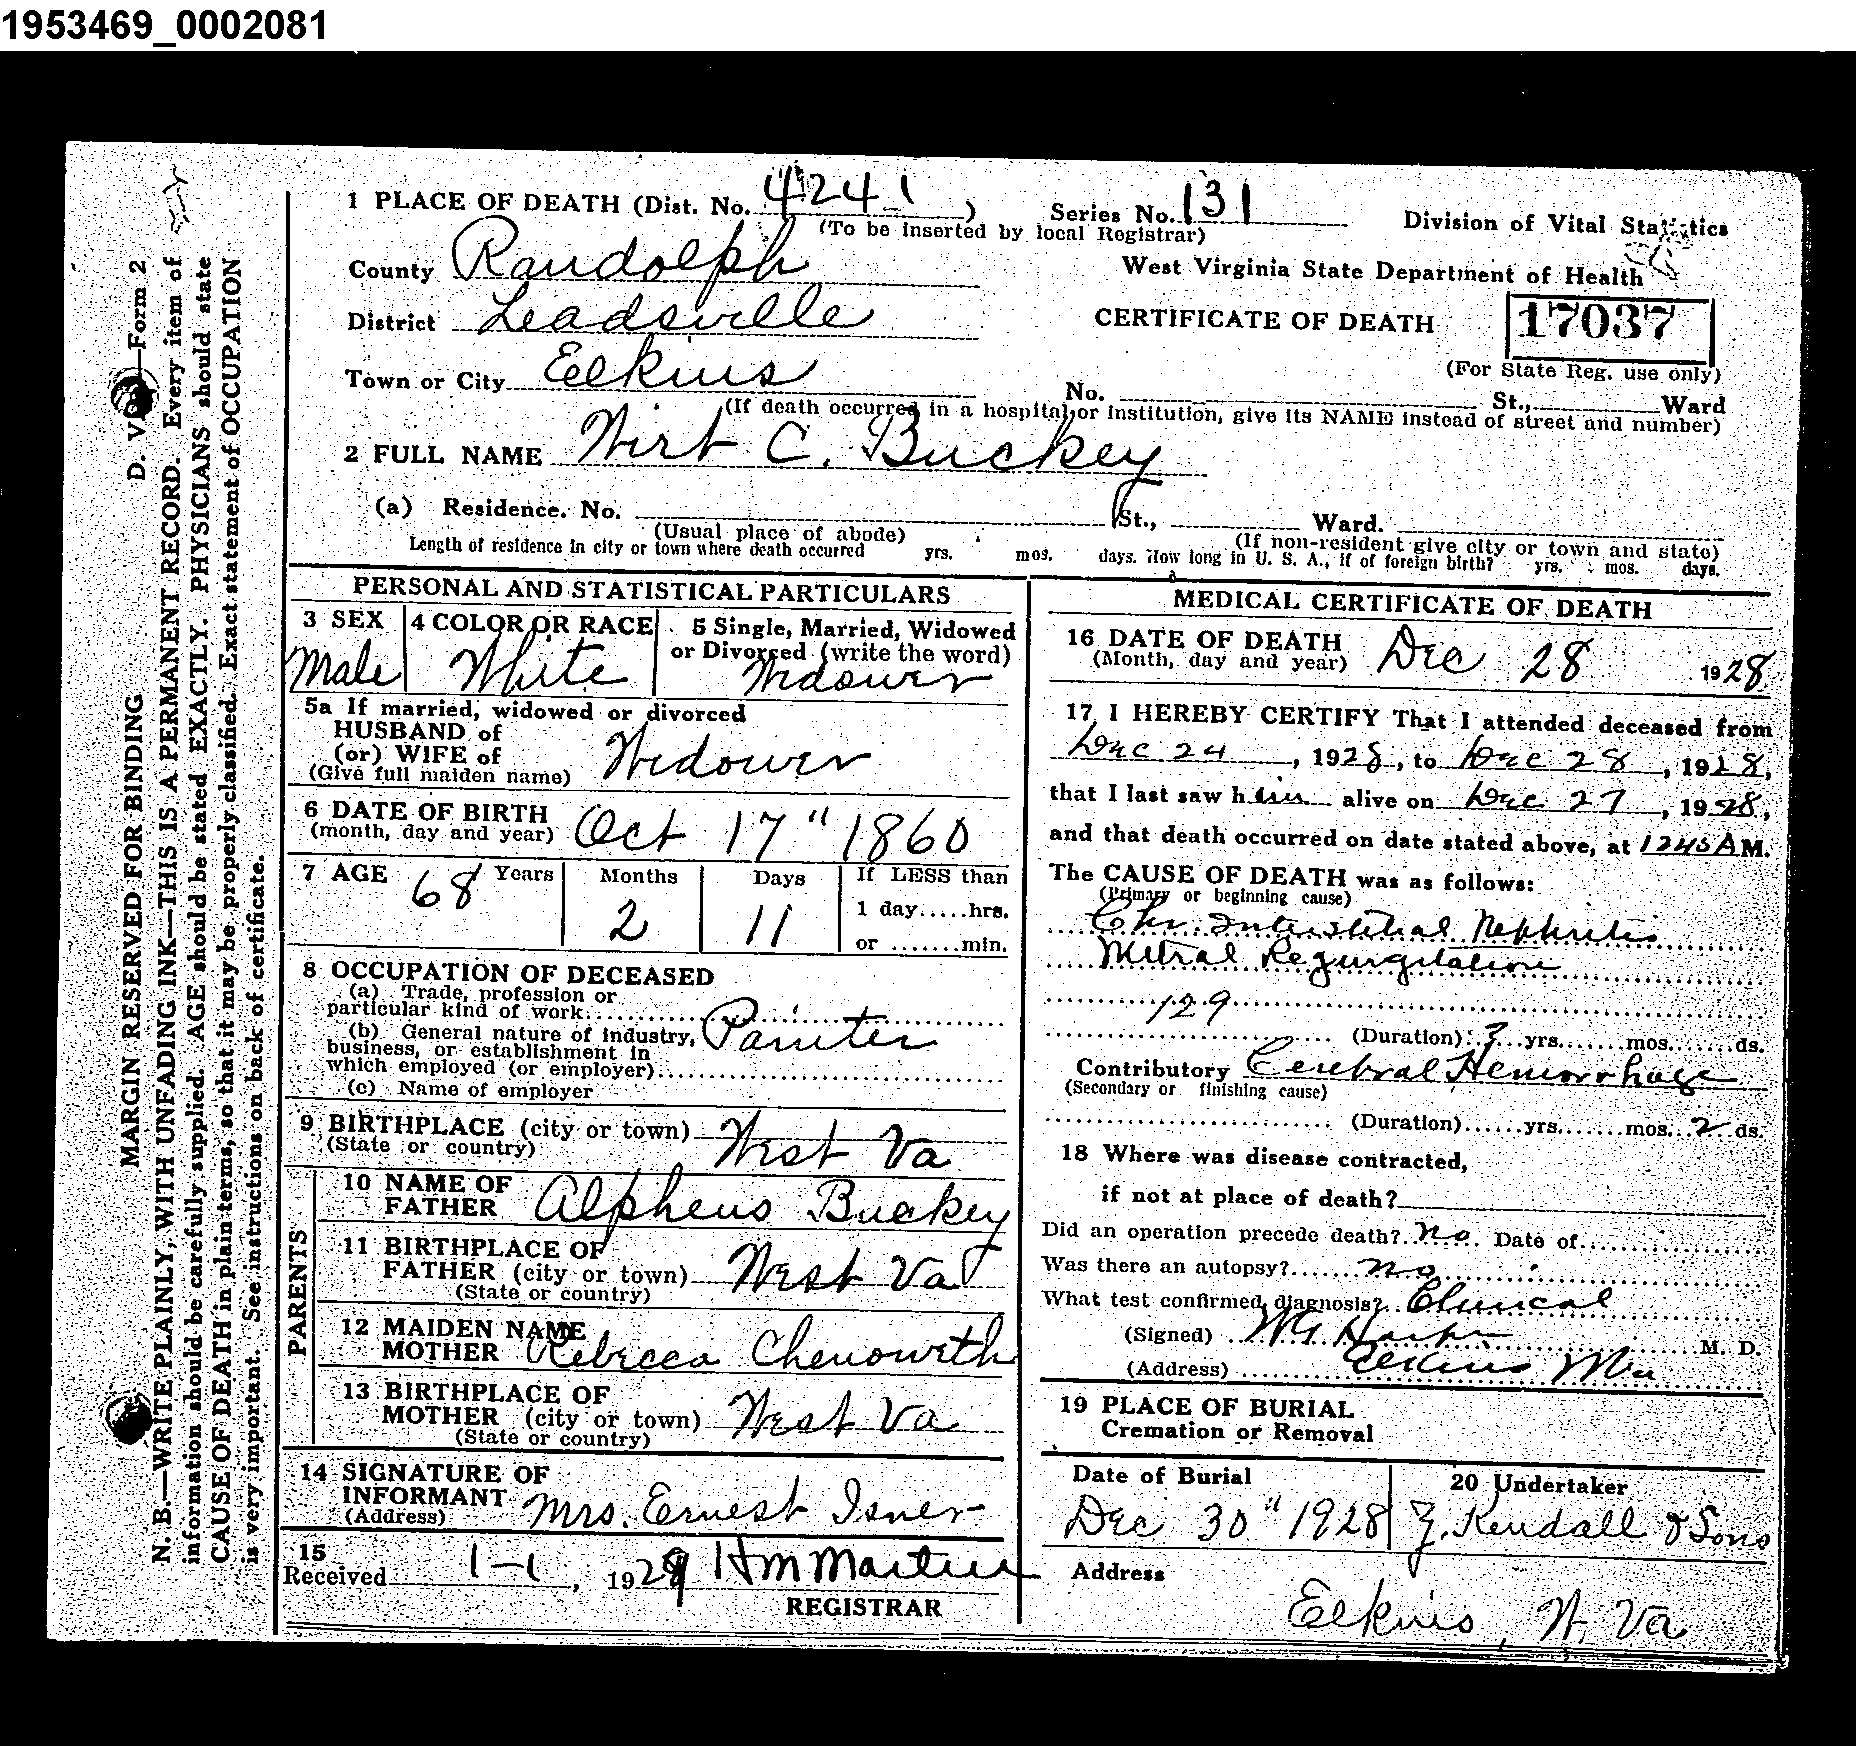 1953469_0002081
1 PLACE OF DEATH (Dist. No. 4241, Series No. 131 Division of Vital Statistics
(To be inserted by local Registrar)
County Randolph West Virginia State Department of Health
District Leadsville CERTIFICATE OF DEATH 17037
(For State Reg. use only)
Town or City Elkins No. St., Ward
(If death occurred in a hospital or institution, give its NAME instead of street and number)
2 FULL NAME Wirt C. Buckey
(a) Residence. No. St., Ward.
(Usual place of abode) (If non-resident give city or town and state)
Length of residence in city or town where death occurred yrs. mos. days. How long in U. S. A., if of foreign birth? yrs. mos. days.
PERSONAL AND STATISTICAL PARTICULARS
3 SEX Male
4 COLOR OR RACE White
5 Single, Married, Widowed
or Divorced (write the word)
Widower
5a If married, widowed or divorced
HUSBAND of
(or) WIFE of
(Give full maiden name) Widower
6 DATE OF BIRTH
(month, day and year) Oct 17" 1860
7 AGE 68 Years 2 Months 11 Days If LESS than
1 day.....hrs.
or .......min.
8 OCCUPATION OF DECEASED
(a) Trade, profession or
particular kind of work
(b) General nature of industry,
business, or establishment in
which employed (or employer) Painter
(c) Name of employer
9 BIRTHPLACE (city or town)
(State or country) West Va
PARENTS
10 NAME OF
FATHER Alpheus Buckey
11 BIRTHPLACE OF
FATHER (city or town) West Va
(State or country)
12 MAIDEN NAME
MOTHER Rebecca Chenowith
13 BIRTHPLACE OF
MOTHER (city or town) West Va
(State or country)
14 SIGNATURE OF
INFORMANT Mrs. Ernest Isner
(Address)
15
Received 1-1, 1929 H M Martin
REGISTRAR
MEDICAL CERTIFICATE OF DEATH
16 DATE OF DEATH
(Month, day and year) Dec 28 1928
17 I HEREBY CERTIFY That I attended deceased from
Dec 24, 1928, to Dec 28, 1928,
that I last saw him alive on Dec 27, 1928,
and that death occurred on date stated above, at 1245 A M.
The CAUSE OF DEATH was as follows:
(Primary or beginning cause)
Chr. Interstitial Nephritis
Mitral Regurgitation
129
(Duration) 3 yrs. mos. ds.
Contributory Cerebral Hemorrhage
(Secondary or finishing cause)
(Duration) yrs. mos. 2 ds.
18 Where was disease contracted,
if not at place of death?
Did an operation precede death? no. Date of
Was there an autopsy? no
What test confirmed diagnosis? Clinical
(Signed) W G M. D.
(Address) Elkins
19 PLACE OF BURIAL
Cremation or Removal
Date of Burial
Dec 30" 1928
20 Undertaker
J. Kendall & Sons
Address
Elkins, W. Va
MARGIN RESERVED FOR BINDING D. V. Form 2
N. B.—WRITE PLAINLY, WITH UNFADING INK—THIS IS A PERMANENT RECORD. Every item of
information should be carefully supplied. AGE should be stated EXACTLY. PHYSICIANS should state
CAUSE OF DEATH in plain terms, so that it may be properly classified. Exact statement of OCCUPATION
is very important. See instructions on back of certificate.